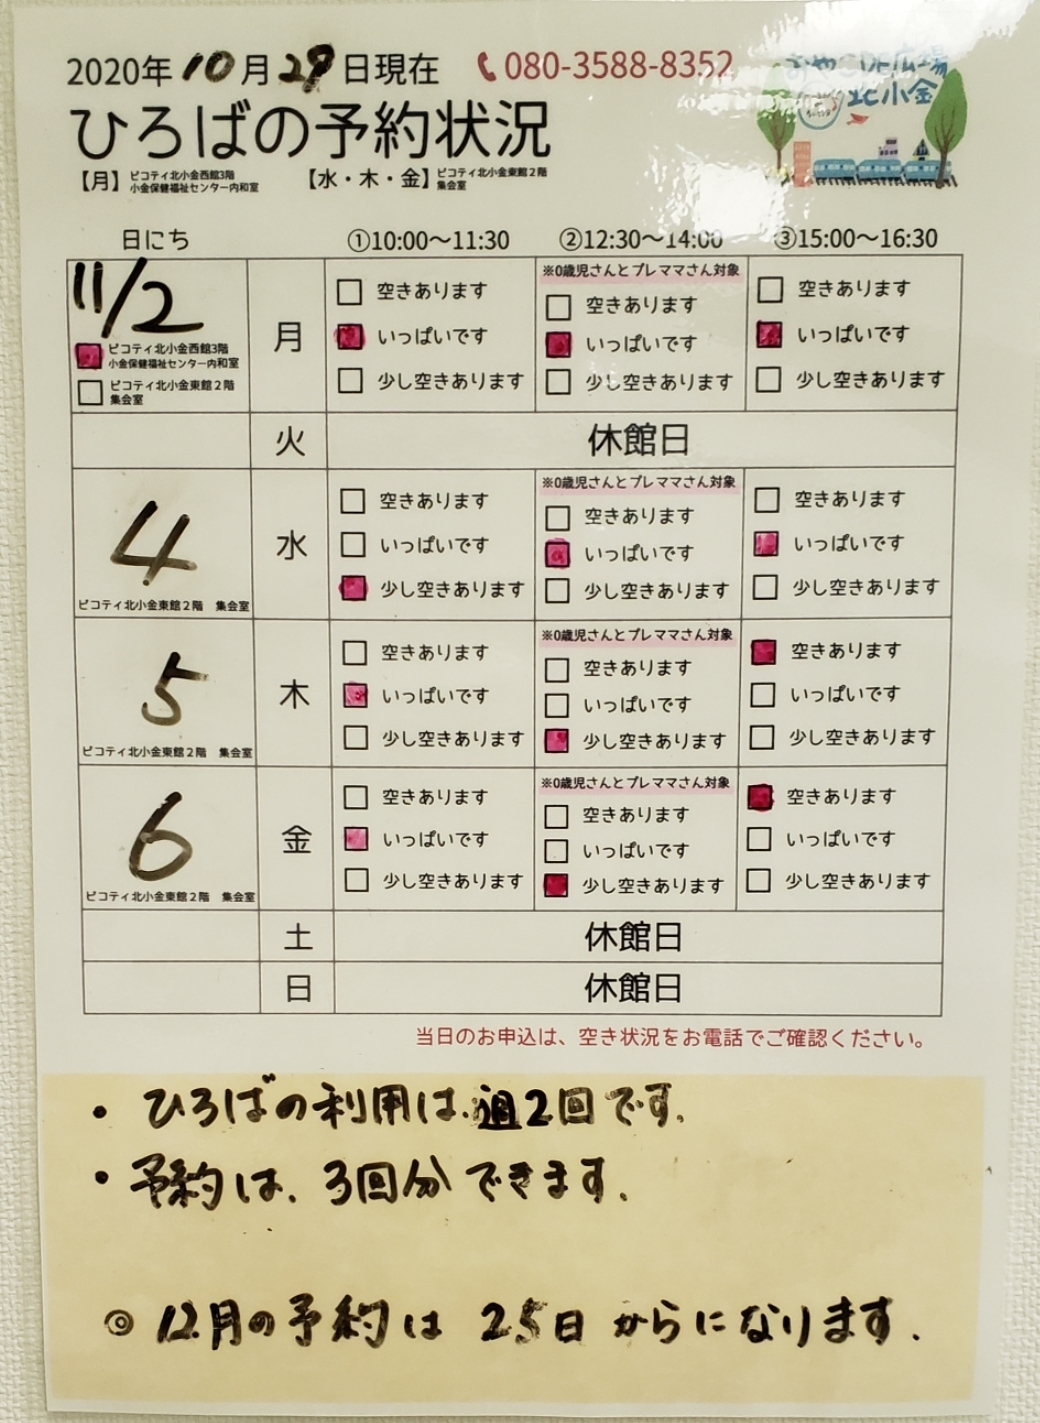 2020年10月29日現在
080-3588-8352
おやこDE広場
北小金
ひろばの予約状況
【月】ピコティ北小金西館3階
小金保健福祉センター内和室
【水・木・金】ピコティ北小金東館2階
集会室
日にち
①10:00〜11:30
②12:30〜14:00
③15:00〜16:30
11/2
ピコティ北小金西館3階
小金保健福祉センター内和室
ピコティ北小金東館2階
集会室
月
空きあります
いっぱいです
少し空きあります
※0歳児さんとプレママさん対象
空きあります
いっぱいです
少し空きあります
空きあります
いっぱいです
少し空きあります
火
休館日
4
ピコティ北小金東館2階 集会室
水
空きあります
いっぱいです
少し空きあります
※0歳児さんとプレママさん対象
空きあります
いっぱいです
少し空きあります
空きあります
いっぱいです
少し空きあります
5
ピコティ北小金東館2階 集会室
木
空きあります
いっぱいです
少し空きあります
※0歳児さんとプレママさん対象
空きあります
いっぱいです
少し空きあります
空きあります
いっぱいです
少し空きあります
6
ピコティ北小金東館2階 集会室
金
空きあります
いっぱいです
少し空きあります
※0歳児さんとプレママさん対象
空きあります
いっぱいです
少し空きあります
空きあります
いっぱいです
少し空きあります
土
休館日
日
休館日
当日のお申込は、空き状況をお電話でご確認ください。
・ひろばの利用は、週2回です。
・予約は、3回分できます。
◎12月の予約は 25日からになります。